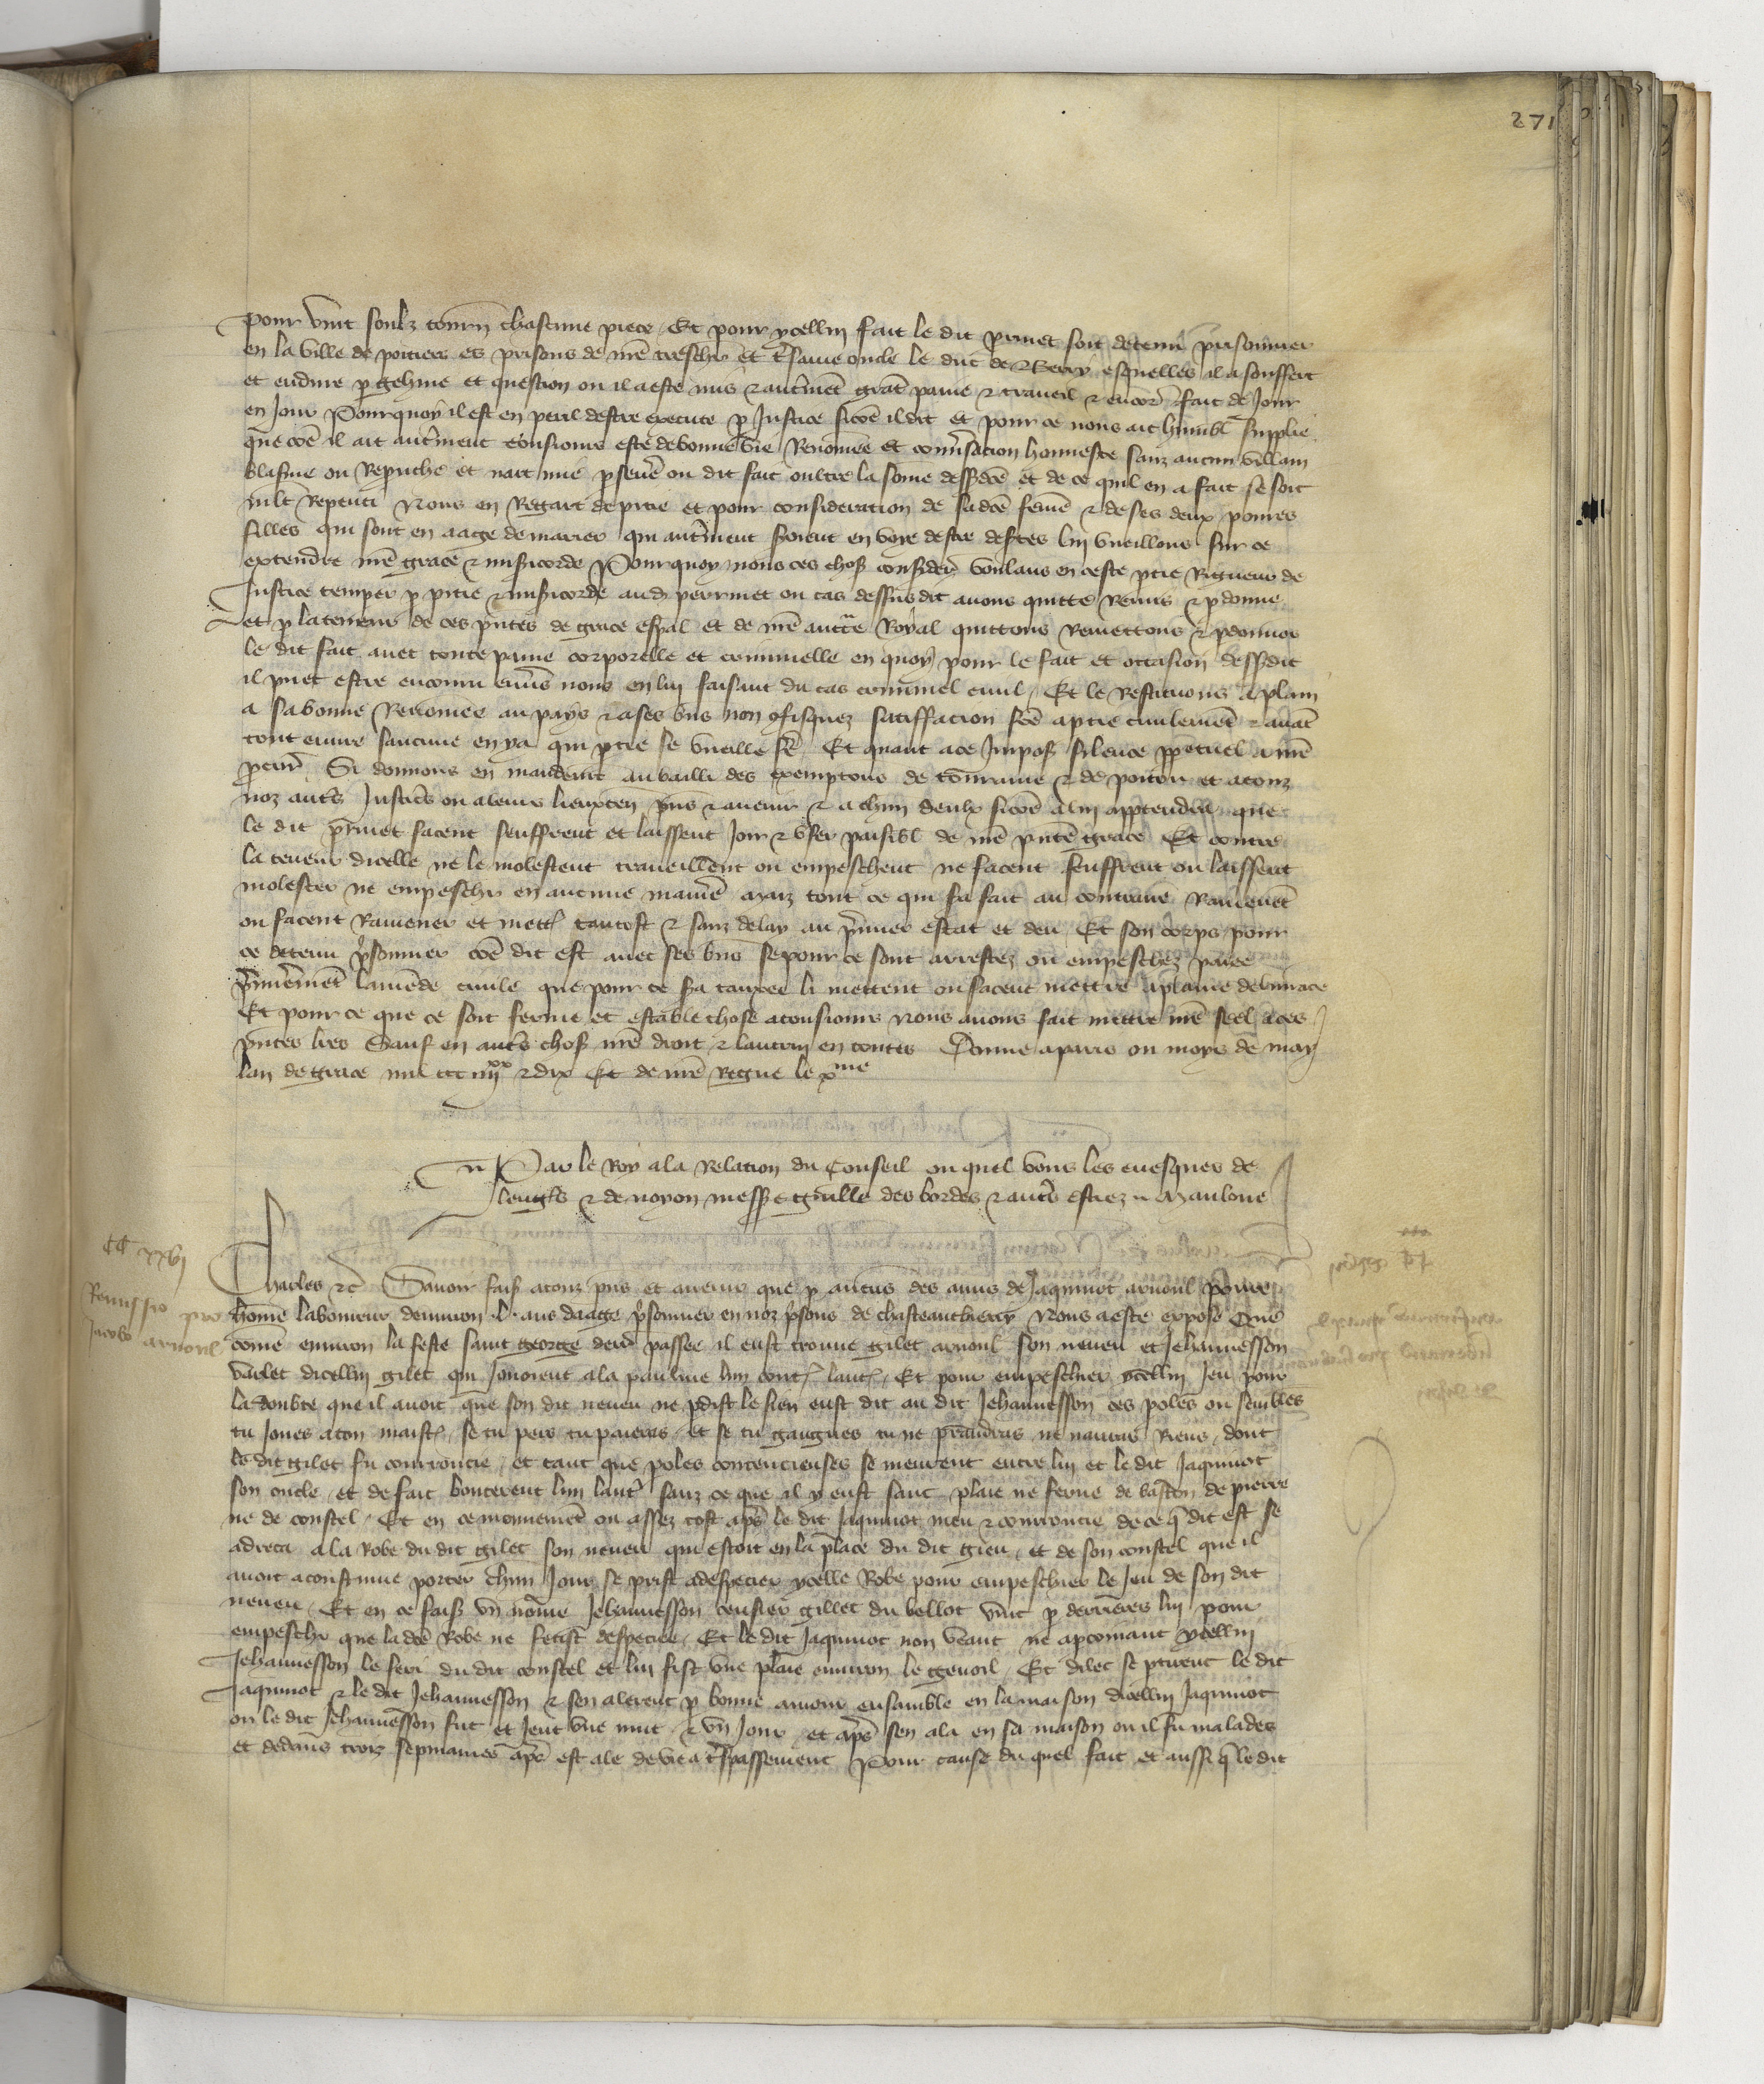 271
pour vint soulz tourn chascune piece Et pour ycellui fait le dit perrinet soit detenu prisonnier
en la ville de poitiers es prisons de nre treschr et tsame oncle le duc de Berry esquelles il a souffert
et endure p gehine et question ou il a este mis & autmet grat paine & traveil & encor fait de jour
en jour Pourquoy il est en peril destre execute p Justice sicoe il dit et pour ce nous ait humbl supplie
que coe il ait autment tousiours este de bonne vie Renomee et convsacion honneste sanz aucun villain
blasme ou Repruche et nait mie psevere ou dit fait oultre la some dessdce et de ce quil en a fait se soit
mlt Repenti Nous en Regart de pitie et pour consideracion de sa dce feme & de ses deux poures
filles qui sont en aage de marier qui autment seroient en voye destre desertes lui vueillons sur ce
extendre nre grace & misicorde Pourquoy nous ces chos consider voulans en ceste ptie Rigueur de
Justice temper p pitie & misicorde aud perrinet ou cas dessus dit avons quitte Remis & pdonne
et p la teneur de ces pntes de grace espal et de nre auctte Royal quittons Remettons & pdonnos
le dit fait avec toute paine corporelle et criminelle en quoy pour le fait et occasion dessdit
il puet estre encouru envs nous en lui faisant du cas criminel civil Et le Restituons a plain
a sa bonne Renomee au pays & a ses bns non 9fisquez satiffacion fce a ptie civilemet & avat
tout euvre saucune en y a qui ptie se vueille fe Et quant a ce Impos silence ppetuel a nre
pcur Si donnons en mandemt au bailli des exempcons de Touraine & de poitou et a touz
noz auts Justics ou a leurs lieuxten pns & avenir & a chun deulx sicoe a lui apptendra que
le dit prinet facent seuffrent et laissent joir & user paisibl de nre pnte grace Et contre
la teneur dicelle ne le molestent traveillent ou empeschent ne facent seuffrent ou laissent
molester ne empeschr en aucune maniere maiz tout ce qui sa fait au contraire Ramenet
ou facent Ramener et mett tantost & sanz delay au prmier estat et deu Et son corps pour
ce detenu psonnier coe dit est avec ses bns se pour ce sont arrestez ou empeschez paiee
pmieremet lamende civile que pour ce sa tauxee li mettent ou facent mettre a plaine delivrace
Et pour ce que ce soit ferme et estable chose a tousiours Nous avons fait mettre nre seel a ces
pntes lres Sauf en auts chos nre droit & lautrui en toutes Donne a paris ou moys de may
lan de grace mil ccc iiijxx & dix Et de nre Regne le xme
Par le Roy a la Relacion du Conseil ou quel vous les evesques de
Lengrs & de noyon messre guille des bordes & auts estiez Manloue
CC xxvj
Remissio pro
Jacobo arnoul
Charles &c Savoir fais a touz pns et avenir que p aucuns des amis de Jaquinot arnoul poure
home laboureur denviron L ans daage psonnier en noz psons de chasteauthierry Nous a este expose Que
come environ la feste saint george derr passee il eust trouve gilet arnoul son neveu et Jehannesson
varlet dicellui gilet qui jouoient a la paulme lun cont laut Et pour empeschier ycellui jeu pour
la doubte que il avoit que son dit neveu ne pdist le sien eust dit au dit Jehannesson ces poles ou sembles
tu joues a ton maist se tu pers tu paieras et se tu gaignes tu ne prandras ne nauras Riens dont
le dit gilet fu courroucie et tant que poles contencieuses se meurent entre lui et le dit Jaquinot
son oncle et de fait bouterent lun laut sanz ce que il y eust sanc plaie ne ferue de baston de pierre
ne de coustel Et en ce mouvemet ou assez tost aps le dit Jaquinot meu & courroucie de ce q dit est se
adreca a la Robe du dit gilet son neveu qui estoit en la place du dit gieu et de son coustel que il
avoit acoustume porter chun jour se prist a despecier ycelle Robe pour empeschier le jeu de son dit
neveu Et en ce fais un nome Jehannesson tensier gillet du bellot vint p derrieres lui pour
empeschr que la dce Robe ne feust despecee Et le dit Jaquinot non veant ne apcevant ycellui
Jehannesson le feri du dit coustel et lui fist une plaie environ le genoil Et dilec se ptirent le dit
Jaquinot & le dit Jehannesson & sen alerent p bonne amour ensamble en la maison dicellui Jaquinot
ou le dit Jehannesson fut et jeut une nuit & un jour et aps sen ala en sa maison ou il fu malades
et dedans trois sepmaines aps est ale de vie a tspassement Pour cause du quel fait et aussi q le dit